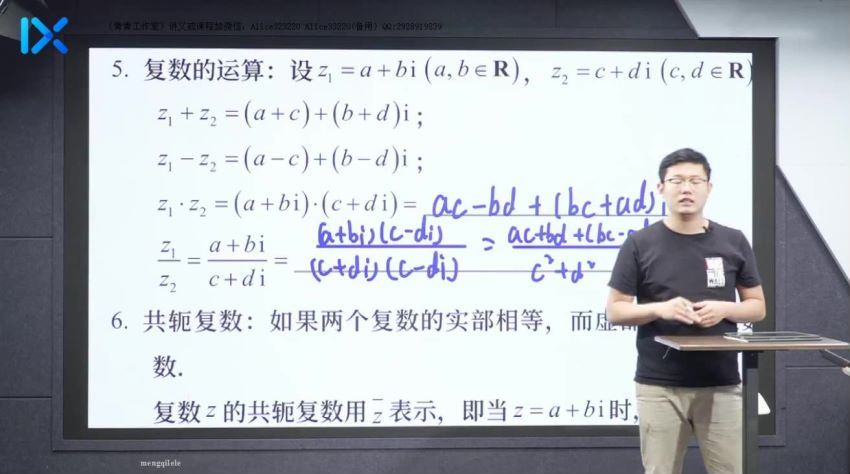 《青青工作室》讲义或课程加微信：Alice323220 Alice33220(备用) QQ:2928919839
5. 复数的运算：设 z₁ = a + bi (a, b ∈ R)，z₂ = c + di (c, d ∈ R)
z₁ + z₂ = (a + c) + (b + d)i；
z₁ − z₂ = (a − c) + (b − d)i；
z₁ · z₂ = (a + bi) · (c + di) = ac − bd + (bc + ad)i
z₁/z₂ = (a + bi)/(c + di) = (a+bi)(c−di)/(c+di)(c−di) = ac+bd+(bc−/c²+d²
6. 共轭复数：如果两个复数的实部相等，而虚
数.
复数 z 的共轭复数用 z̄ 表示，即当 z = a + bi 时，
mengqilele